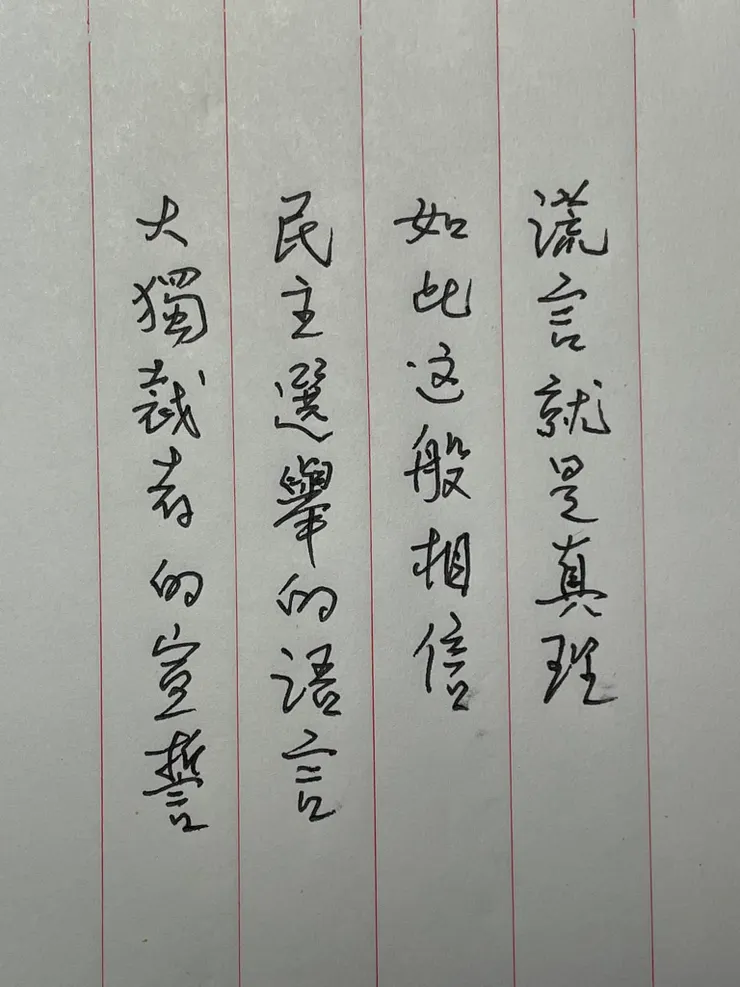 流言就是真理
如此这般相信
民主選舉的语言
大獨裁者的宣誓